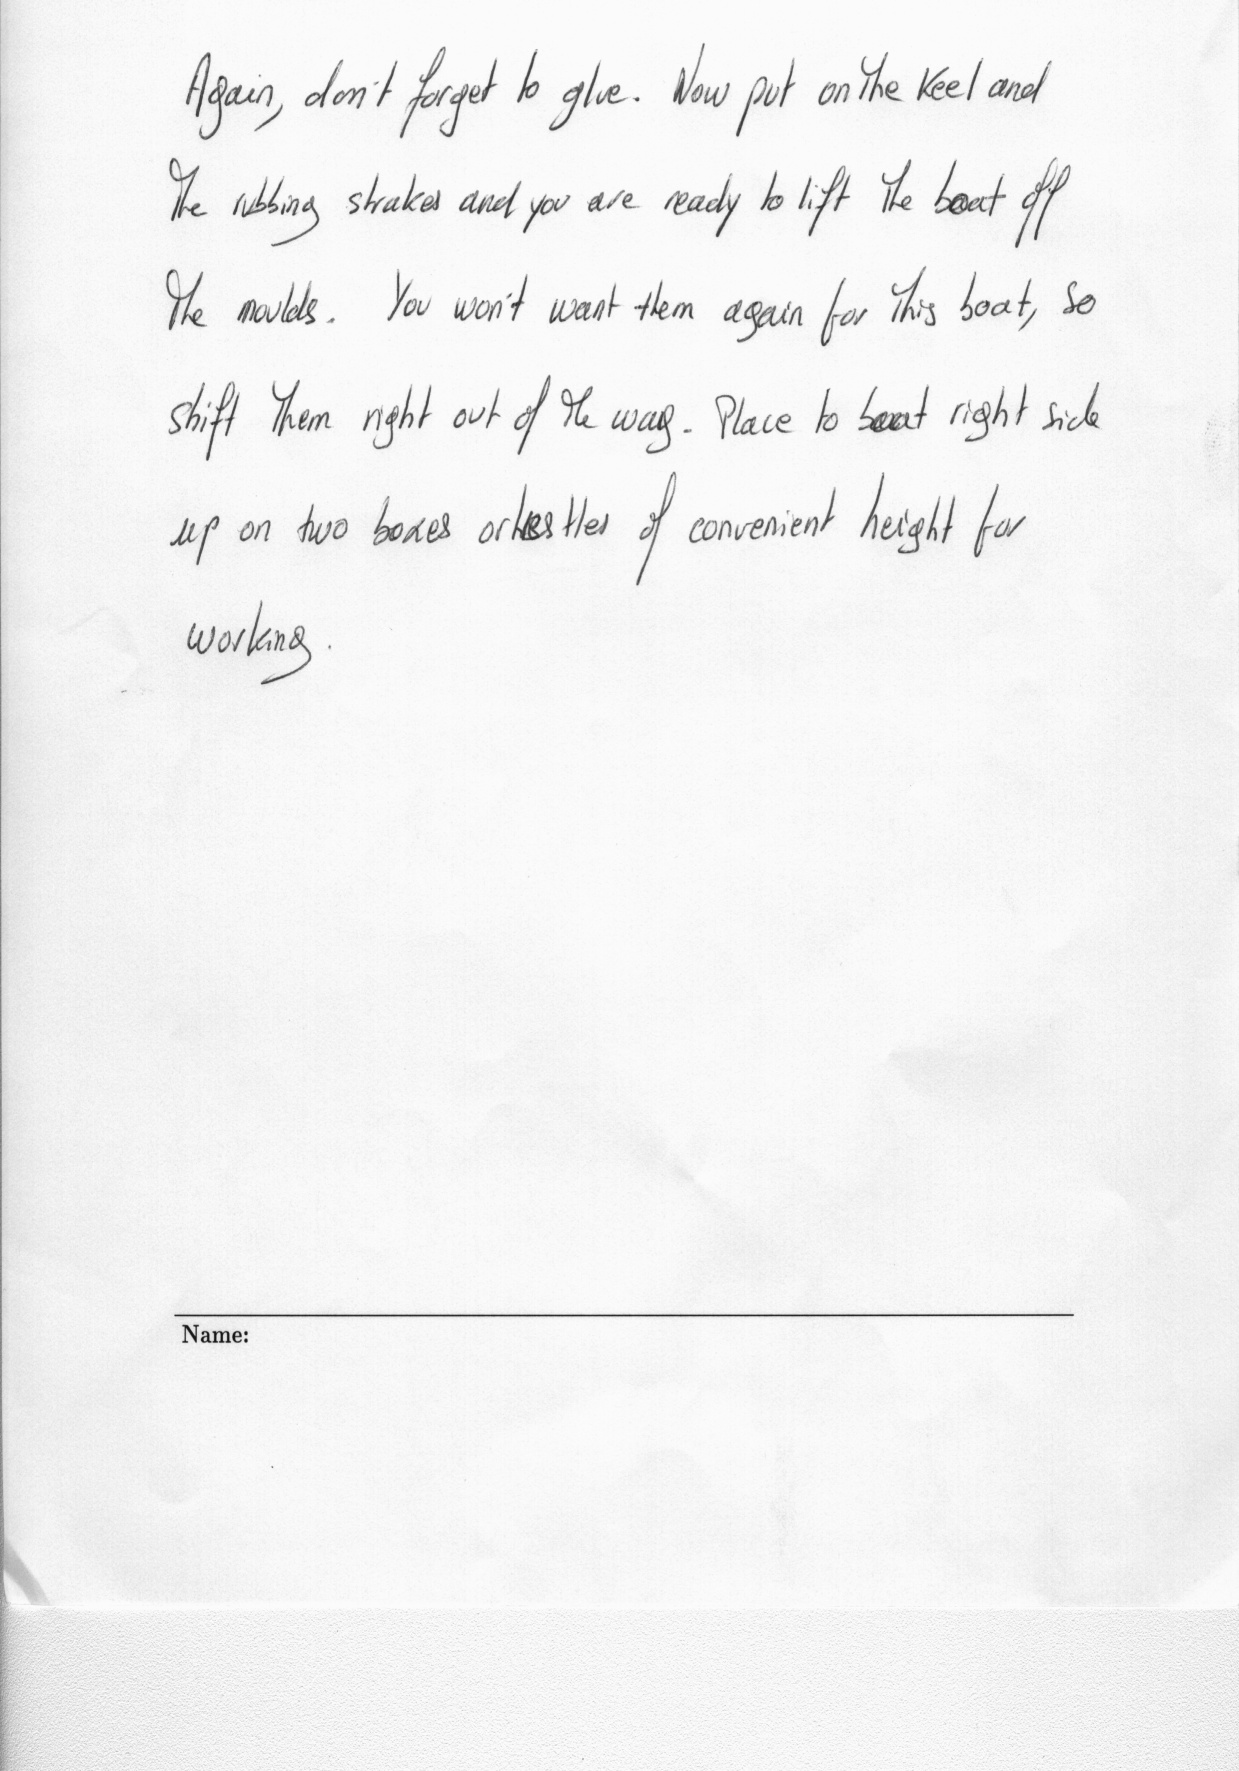 Again, don't forget to glue. Now put on the keel and
the rubbing strakes and you are ready to lift the boat off
the moulds. You won't want them again for this boat, so
shift them right out of the way. Place to boat right side
up on two boxes or trestles of convenient height for
working.
Name: